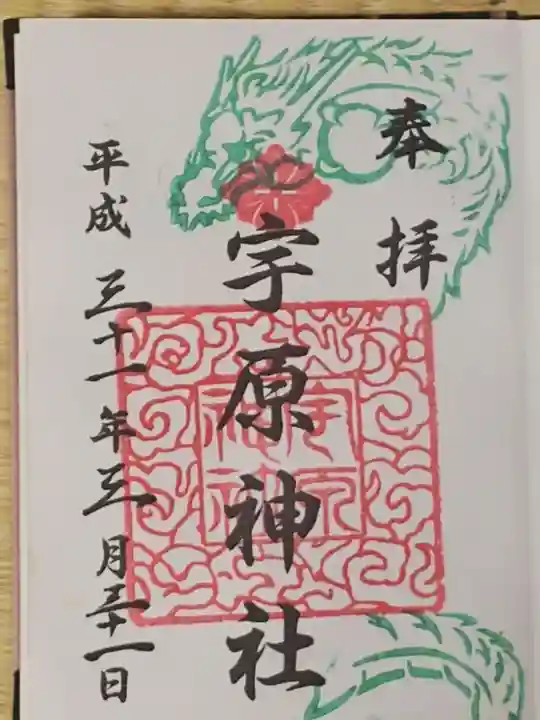 奉拝
宇原神社
平成三十一年三月三十一日